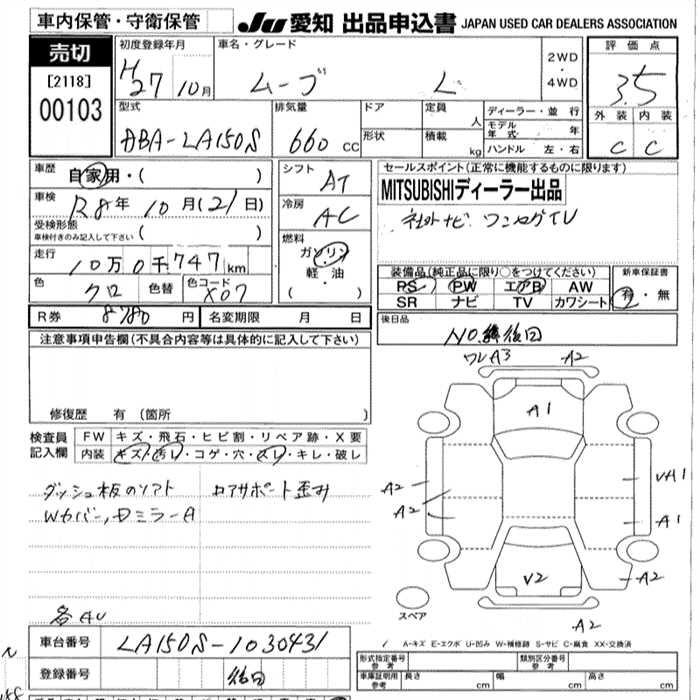 車内保管・守衛保管
JU 愛知 出品申込書 JAPAN USED CAR DEALERS ASSOCIATION
売切
[2118]
00103
初度登録年月
H27 10月
車名・グレード
ムーブ L
2WD
・
4WD
評価点
3.5
型式
DBA-LA150S
排気量
660 cc
ドア
形状
定員
人
積載
kg
ディーラー・並行
モデル年式 年
ハンドル 左・右
外装 内装
C C
車歴
自家用・( )
車検
R8年 10月(21日)
受検形態
車検付きのみ記入して下さい ( )
走行
10万0千747km
色
クロ
色替
色コード
X07
シフト
AT
冷房
AC
燃料
ガソリン
軽・油
( ・ )
セールスポイント(正常に機能するものに限ります)
MITSUBISHIディーラー出品
社外ナビ ワンセグTV
装備品(純正品に限り○をつけてください)
PS PW エアB AW
SR ナビ TV カワシート
新車保証書
有・無
R券 8780円
名変期限 月 日
後日品
NO.後日
注意事項申告欄(不具合内容等は具体的に記入して下さい)
修復歴 有(箇所 )
検査員
記入欄
FW キズ・飛石・ヒビ割・リペア跡・X要
内装 キズ・汚レ・コゲ・穴・スレ・キレ・破レ
ダッシュ板のソフト
ロアサポート歪み
Wカバー,DミラーA
各AU
ワレA3
A2
A1
A2
A2
A1
A2
V2
A2
スペア
A-キズ E-エクボ U-凹み W-補修跡 S-サビ C-腐食 XX-交換済
車台番号
LA150S-1030431
登録番号
後日
形式指定番号
参考
類別区分番号
参考
車庫証明用
参考
長さ cm
幅 cm
高さ cm